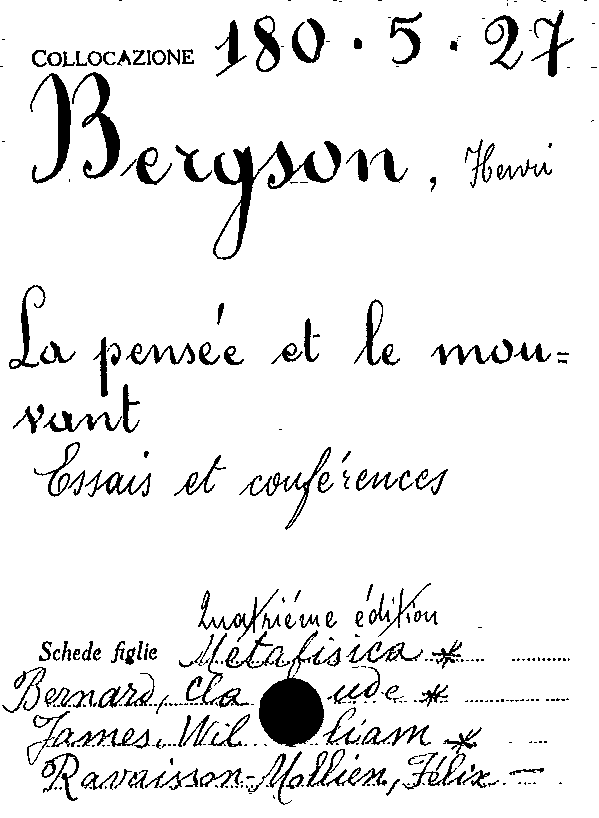 COLLOCAZIONE 180.5.27
Bergson, Henri
La pensée et le mou=
vant
Essais et conférences
Quatriéme édition
Schede figlie Metafisica *
Bernard, Claude *
James, William *
Ravaisson-Mollien, Félix —